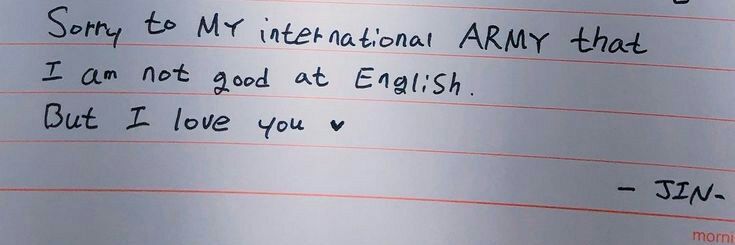 Sorry to MY international ARMY that
I am not good at English.
But I love you ♥
- JIN-
morni